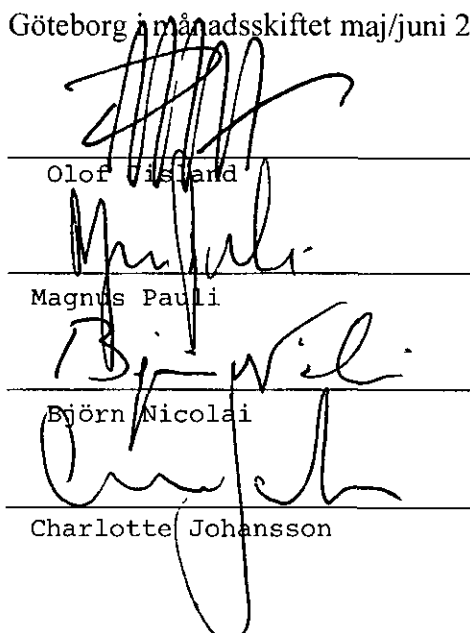 Göteborg i månadsskiftet maj/juni 2
Olof
Magnus Pauli
Björn Nicolai
Charlotte Johansson